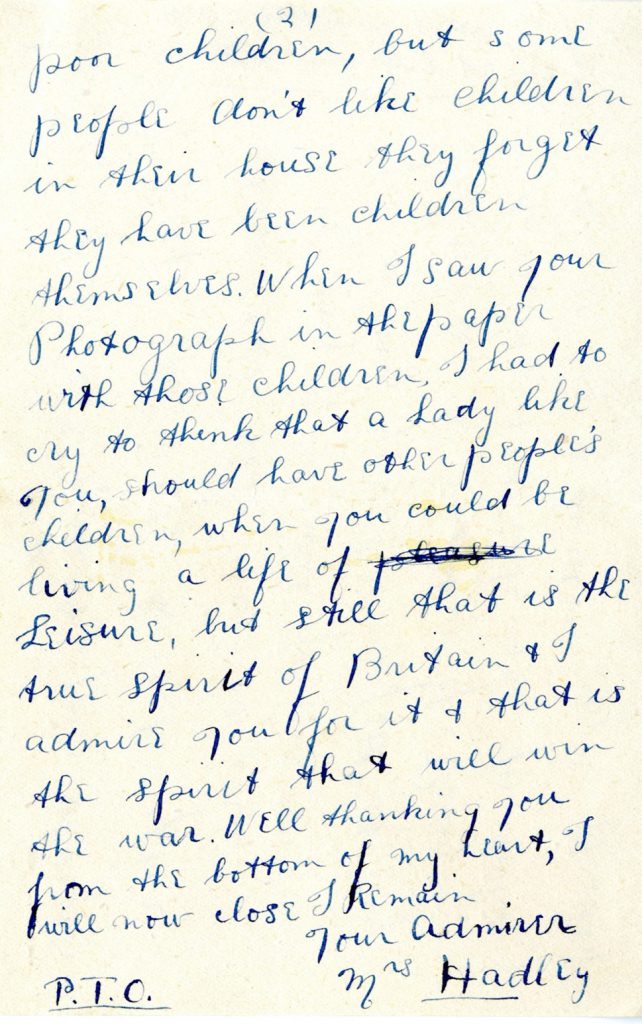 (2)
poor children, but some
people don't like children
in their house they forget
they have been children
themselves. When I saw your
Photograph in the paper
with those children, I had to
cry to think that a Lady like
you, should have other people's
children, when you could be
living a life of pleasure
Leisure, but still that is the
true spirit of Britain & I
admire you for it & that is
the spirit that will win
the war. Well thanking you
from the bottom of my heart, I
will now close I Remain
your Admirer
Mrs Hadley
P.T.O.